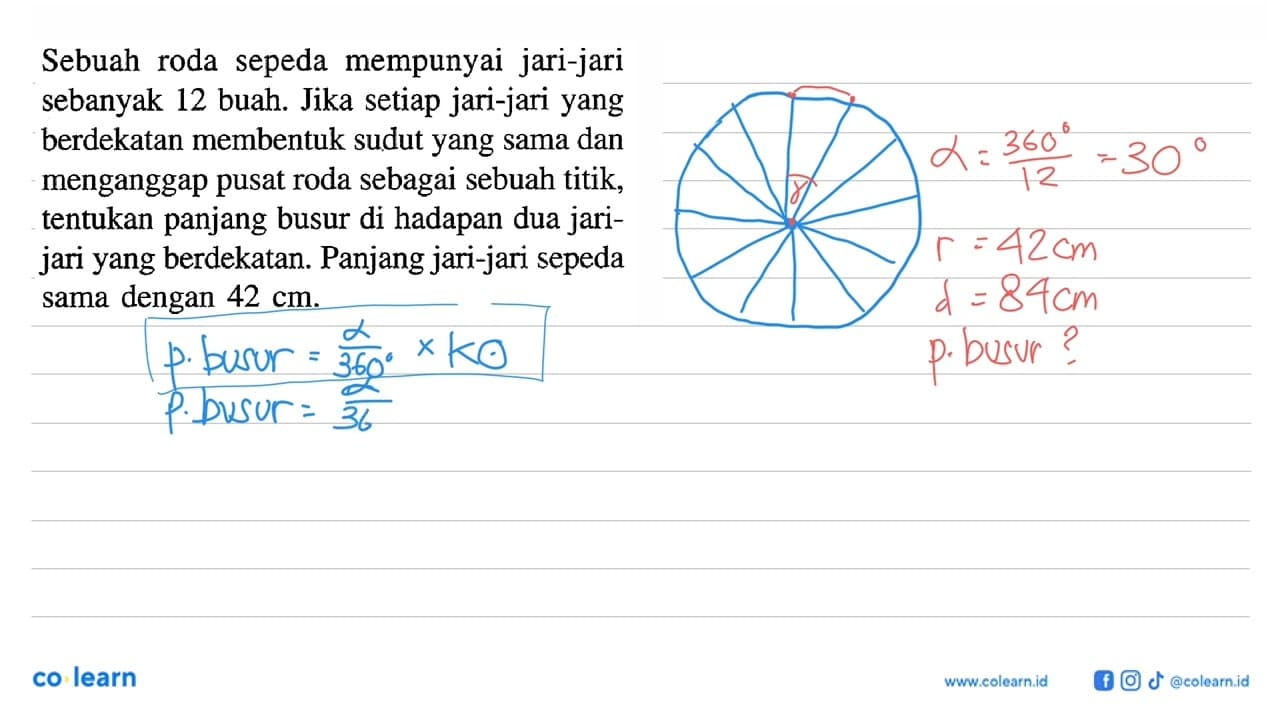 Sebuah roda sepeda mempunyai jari-jari
sebanyak 12 buah. Jika setiap jari-jari yang
berdekatan membentuk sudut yang sama dan
menganggap pusat roda sebagai sebuah titik,
tentukan panjang busur di hadapan dua jari-
jari yang berdekatan. Panjang jari-jari sepeda
sama dengan 42 cm.
α = 360° / 12 = 30°
r = 42 cm
d = 84 cm
p. busur ?
p. busur = α / 360° × K⊙
p. busur = α / 36
co learn
www.colearn.id
@colearn.id